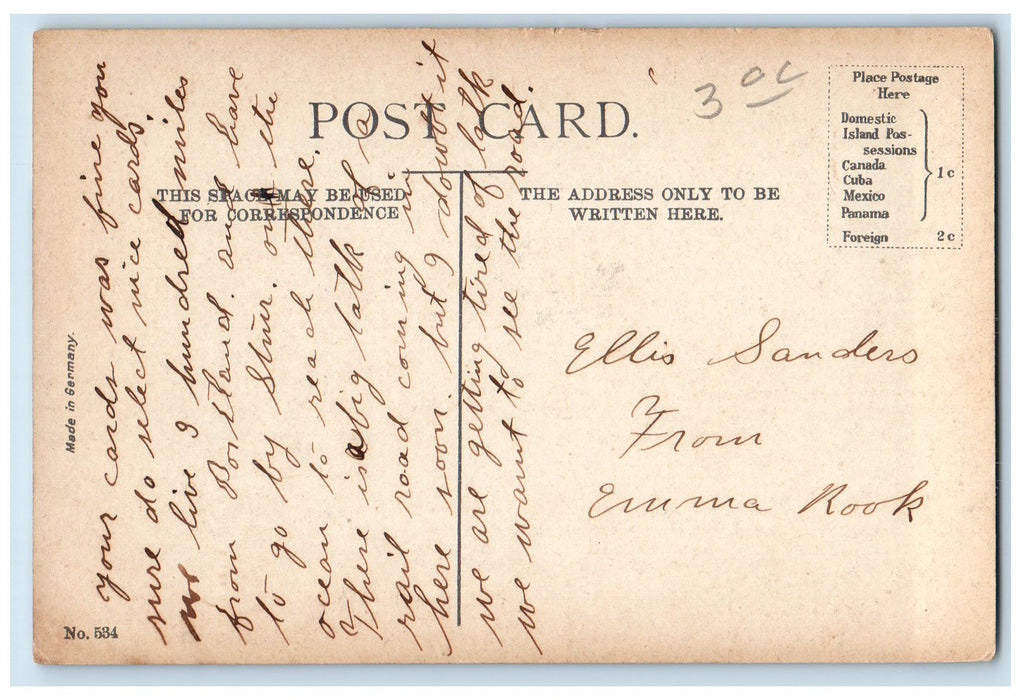 POST CARD.
3 oc
Place Postage
Here
Domestic
Island Pos-
sessions
Canada
Cuba
Mexico
Panama
1 c
Foreign 2 c
THIS SPACE MAY BE USED
FOR CORRESPONDENCE
THE ADDRESS ONLY TO BE
WRITTEN HERE.
your cards was fine you
sure do select nice cards.
we live 3 hundred miles
from Portland. and have
to go by Stmr. on the
ocean to reach there.
There is a big talk of a
rail road coming in
here soon. but I doubt it
we are getting tired of talk
we want to see the road.
Ellis Sanders
From
Emma Rook
Made in Germany.
No. 534